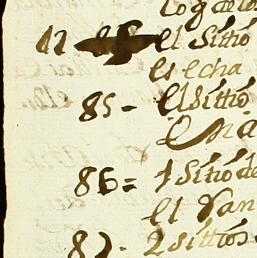 log de los
42 el Sittio
es echa
85 - el Sittio
86 = 1 Sitio de
el Yan
87 - 2 sittios